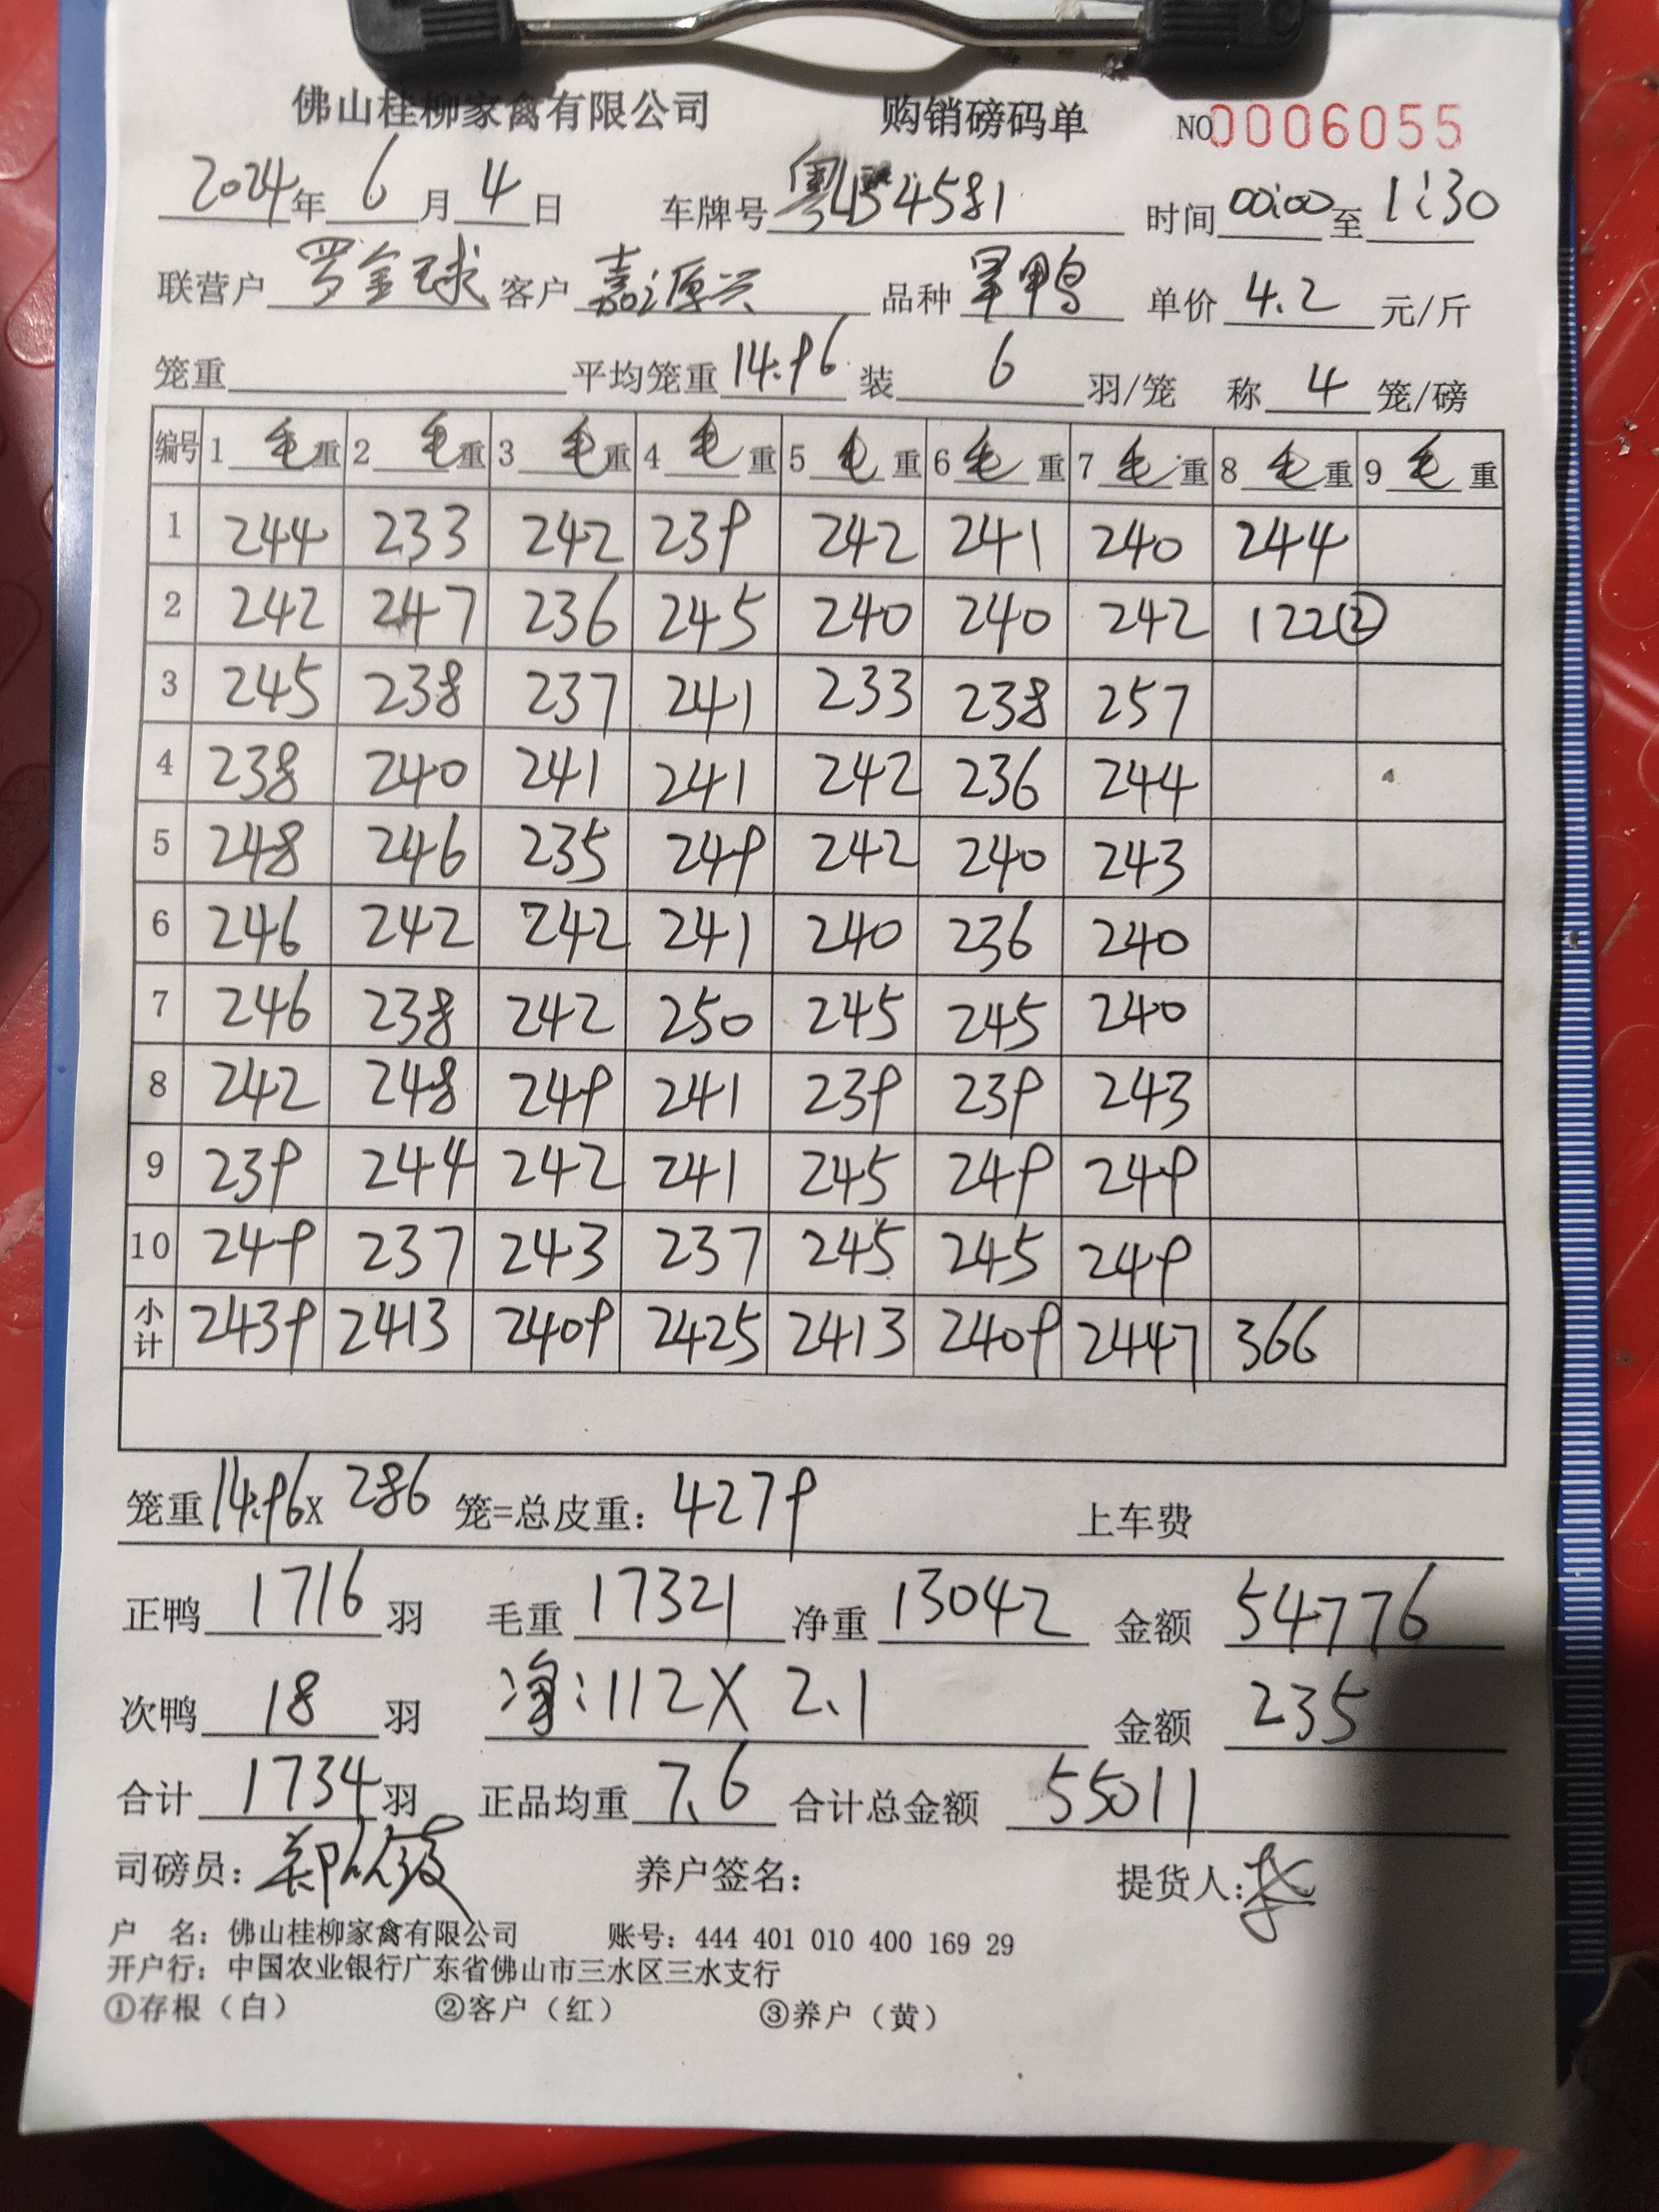 佛山桂柳家禽有限公司 购销磅码单 NO0006055
2024年 6月 4日 车牌号 粤 4581 时间 00:00 至 1:30
联营户 罗金球 客户 嘉源兴 品种 旱鸭 单价 4.2 元/斤
笼重 平均笼重 14.96 装 6 羽/笼 称 4 笼/磅
编号 1 毛重 2 毛重 3 毛重 4 毛重 5 毛重 6 毛重 7 毛重 8 毛重 9 毛重
1 244 233 242 239 242 241 240 244
2 242 247 236 245 240 240 242 122②
3 245 238 237 241 233 238 257
4 238 240 241 241 242 236 244
5 248 246 235 249 242 240 243
6 246 242 242 241 240 236 240
7 246 238 242 250 245 245 240
8 242 248 249 241 239 239 243
9 239 244 242 241 245 249 249
10 249 237 243 237 245 245 249
小计 2439 2413 2409 2425 2413 2409 2447 366
笼重 14.96 x 286 笼=总皮重: 4279 上车费
正鸭 1716 羽 毛重 17321 净重 13042 金额 54776
次鸭 18 羽 净:112 X 2.1 金额 235
合计 1734 羽 正品均重 7.6 合计总金额 55011
司磅员: 养户签名: 提货人:
户 名: 佛山桂柳家禽有限公司 账号: 444 401 010 400 169 29
开户行: 中国农业银行广东省佛山市三水区三水支行
①存根（白） ②客户（红） ③养户（黄）